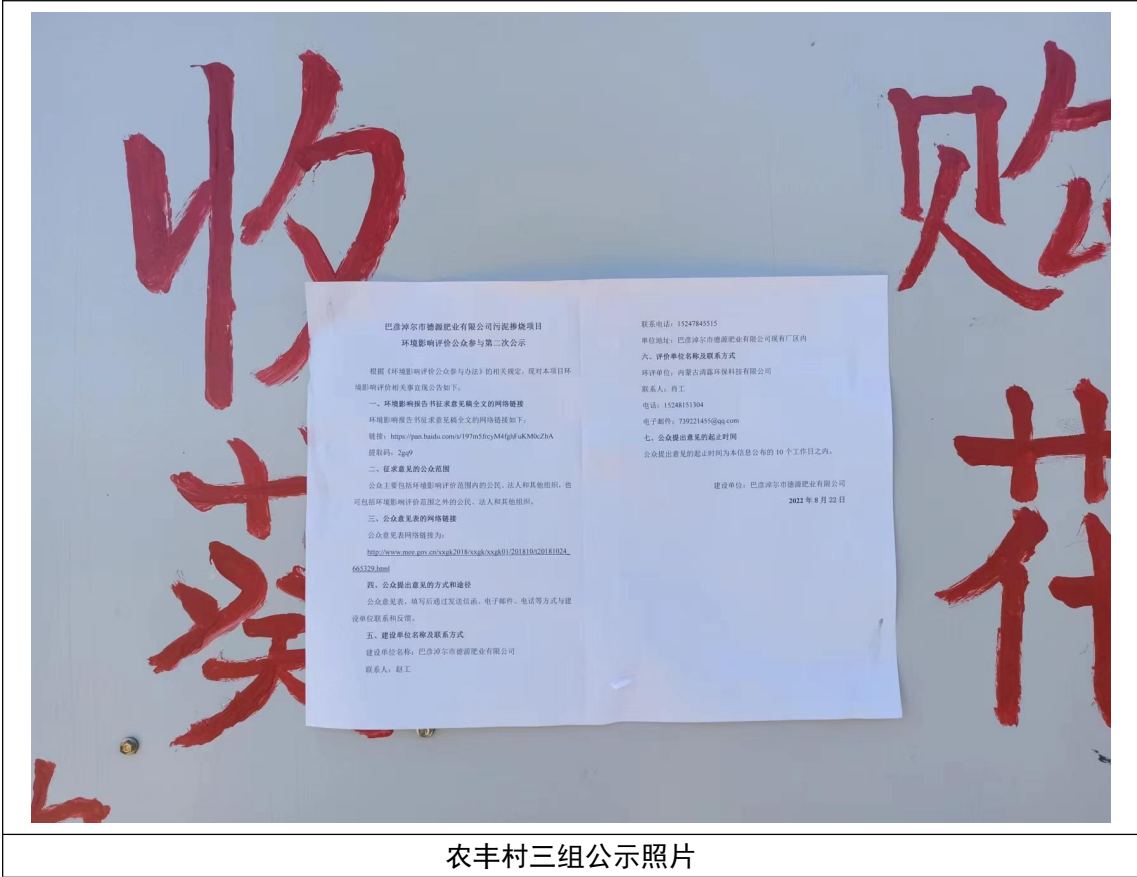 收购
葵花
巴彦淖尔市德源肥业有限公司污泥掺烧项目
环境影响评价公众参与第二次公示
根据《环境影响评价公众参与办法》的相关规定，现对本项目环
境影响评价相关事宜现公告如下。
一、环境影响报告书征求意见稿全文的网络链接
环境影响报告书征求意见稿全文的网络链接如下：
链接：https://pan.baidu.com/s/197m5frcyM4fghFuKM0cZhA
提取码：2gq9
二、征求意见的公众范围
公众主要包括环境影响评价范围内的公民、法人和其他组织，也
可包括环境影响评价范围之外的公民、法人和其他组织。
三、公众意见表的网络链接
公众意见表网络链接为：
http://www.mee.gov.cn/xxgk2018/xxgk/xxgk01/201810/t20181024_
665329.html
四、公众提出意见的方式和途径
公众意见表，填写后通过发送信函、电子邮件、电话等方式与建
设单位联系和反馈。
五、建设单位名称及联系方式
建设单位名称：巴彦淖尔市德源肥业有限公司
联系人：赵工
联系电话：15247845515
单位地址：巴彦淖尔市德源肥业有限公司现有厂区内
六、评价单位名称及联系方式
环评单位：内蒙古清蕴环保科技有限公司
联系人：肖工
电话：15248151304
电子邮件：739221455@qq.com
七、公众提出意见的起止时间
公众提出意见的起止时间为本信息公布的 10 个工作日之内。
建设单位：巴彦淖尔市德源肥业有限公司
2022 年 8 月 22 日
农丰村三组公示照片